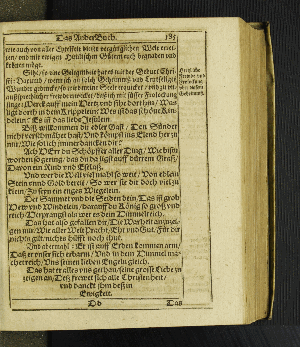 Das Ander Buch. 185
wie auch von aller Eytelkeit dieser vergänglichen Welt
den/ und mit ewigen Himlischen Gütern euch begnaden und
Sihe/ so eine Gelegenheit hat es mit der Geburt Christi
Wunder
singe: Merck auff mein Hertz und sih dort hin/ Was
ligt dort in dem Krippelein: Wes ist das schöne Kin-
delein: Es ist das liebe Jesulein.
Biß willkommen du edler Gast/ Den Sünder
nicht verschmähet hast/ Und kömpst ins Elend her zu
mir/ Wie sol ich immer dancken dir?
Ach HErr du Schöpffer aller Ding/ Wie bistu
worden so gering/ das du da ligst auff dürrem Graß/
Davon ein Rind und Esel aß.
Und wer die Welt viel mahl so weit/ Von edlem
Stein und Gold bereit/ So wer sie dir doch viel zu
klein/ Zu seyn ein enges Wiegelein.
Der Sammet und die Seiden dein/ Das ist grob
Hew und Windelein/ darauff du König so groß und
reich/ Her prangst als wer es dein Himmelreich.
Das hat also gefallen dir/ Die Warheit anzuzei-
gen mir/ Wie aller Welt Pracht/ Ehr und Gut/ Für dir
nichts gilt/ nichts hilfft noch thut.
Und abermahl: Er ist auff Erden kommen arm/
Daß er unser sich erbarm/ Und in dem Himmel ma-
chet reich/ Und seinen lieben Engeln gleich.
Das hat er alles uns gethan/ seine grosse Liebe zu
zeigen an/ Deß frewet sich alle Christenheit/
und danckt ihm deß in
Ewigkeit.
Dd Das